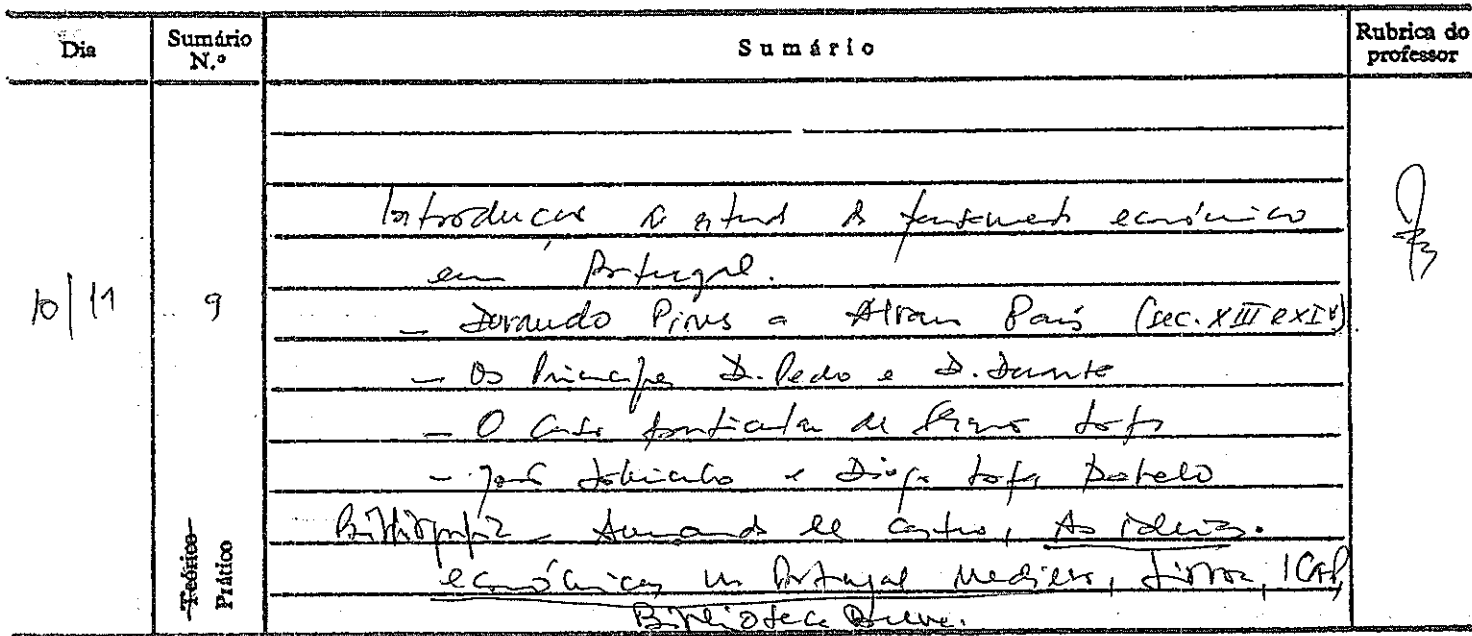 Dia
Sumário N.º
Sumário
Rubrica do professor
10/11
9
Teórico
Prático
Introdução ao estudo do pensamento económico
em Portugal.
- Durando Pires e Álvaro Pais (sec. XIII e XIV)
- Os Príncipes D. Pedro e D. Duarte
- O Caso particular de Fernão Lopes
- João Sobrinho e Diogo Lopes Rebelo
Bibliografia - Armando de Castro, As ideias
económicas no Portugal medievo, Lisboa, ICAP,
Biblioteca Breve.